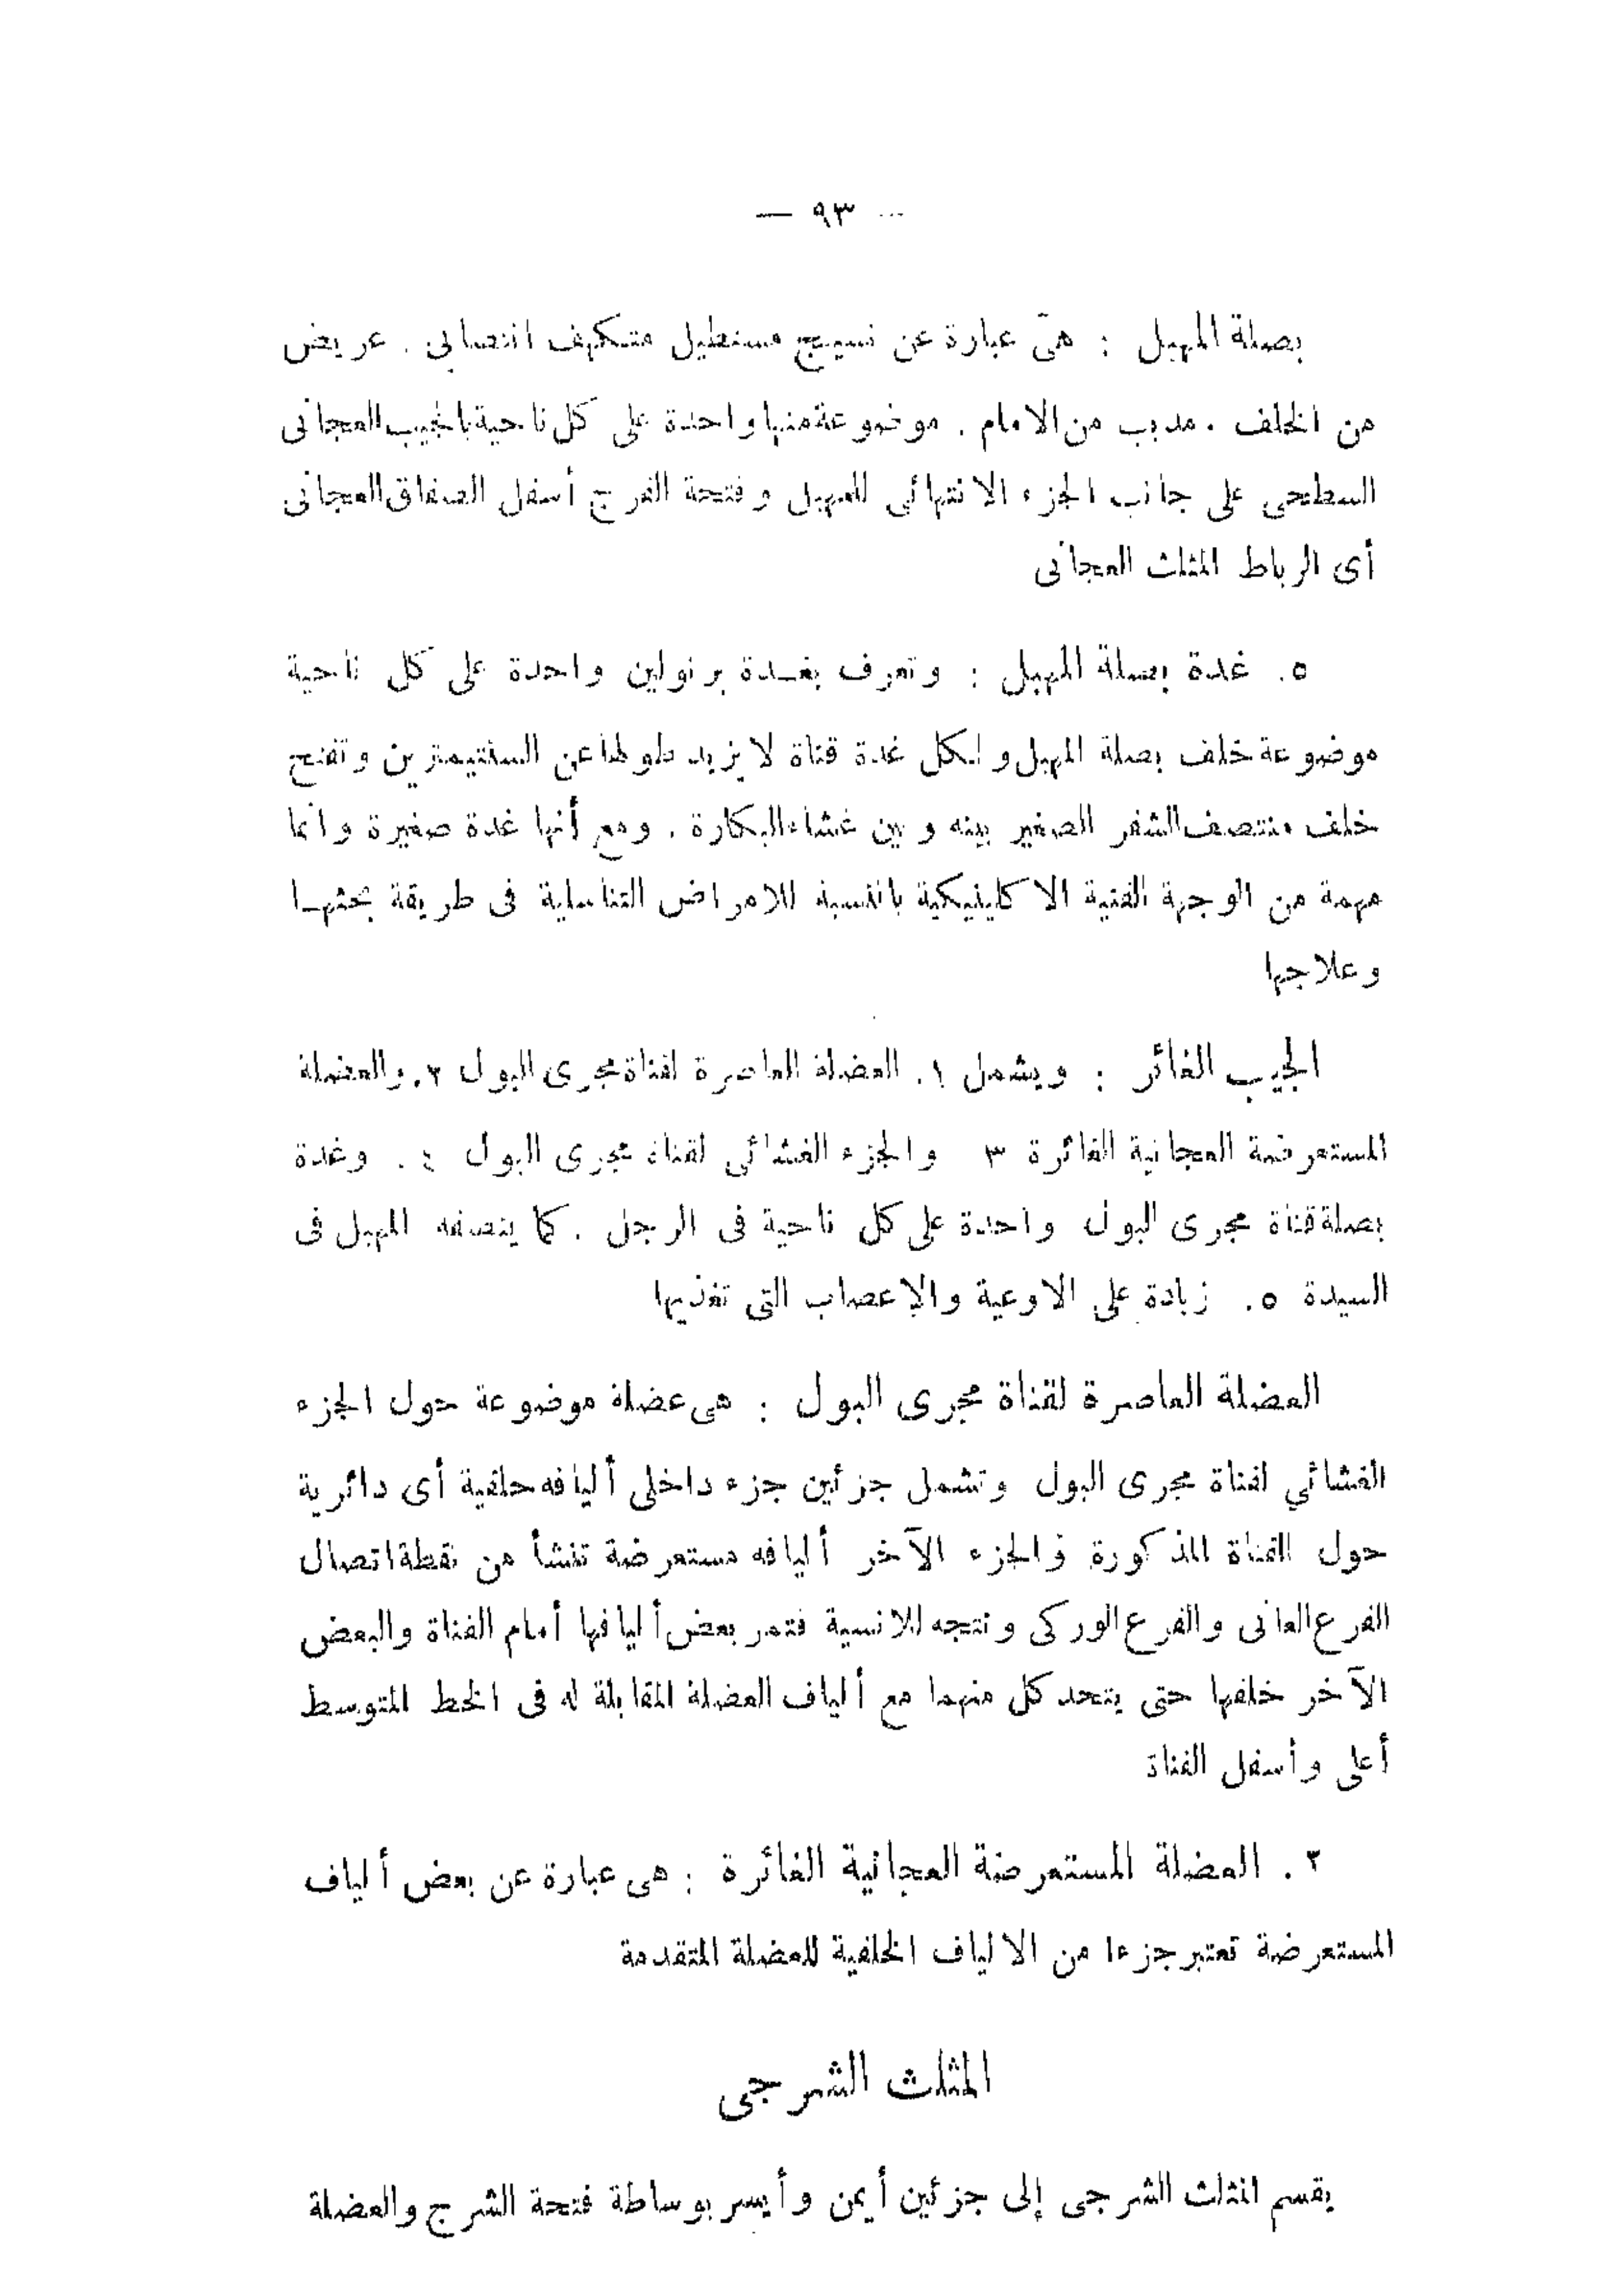 — ٩٣ —
بصلة المهبل : هى عبارة عن نسيج مستطيل متكهف انتصابى . عريض
من الخلف . مدبب من الامام . موضوعة منها واحدة على كل ناحية بالجيب العجانى
السطحى على جانب الجزء الانتهائى للمهبل وفتحة الفرج أسفل الصفاق العجانى
أى الرباط المثلث العجانى
٥. غدة بصلة المهبل : وتعرف بغدة برنولين واحدة على كل ناحية
موضوعة خلف بصلة المهبل ولكل غدة قناة لا يزيد طولها عن السنتيمترين وتفتح
خلف منتصف الشفر الصغير بينه وبين غشاء البكارة . ومع أنها غدة صغيرة وانما
مهمة من الوجهة الفنية الاكلينيكية بالنسبة للامراض التناسلية فى طريقة بحثهـا
وعلاجها
الجيب الغائر : ويشمل ١. العضلة العاصرة لقناة مجرى البول ٢. والعضلة
المستعرضة العجانية الغائرة ٣ والجزء الغشائى لقناة مجرى البول ٤ . وغدة
بصلة قناة مجرى البول واحدة على كل ناحية فى الرجل . كما ينصفه المهبل فى
السيدة ٥. زيادة على الاوعية والاعصاب التى تغذيها
العضلة العاصرة لقناة مجرى البول : هى عضلة موضوعة حول الجزء
الغشائي لقناة مجرى البول وتشمل جزئين جزء داخلى أليافه حلقية أى دائرية
حول القناة المذكورة والجزء الآخر أليافه مستعرضة تنشأ من نقطة اتصال
الفرع العانى والفرع الوركى وتتجه للانسية فتمر بعض أليافها أمام القناة والبعض
الآخر خلفها حتى يتحد كل منهما مع ألياف العضلة المقابلة له فى الخط المتوسط
أعلى وأسفل القناة
٢. العضلة المستعرضة العجانية الغائرة : هى عبارة عن بعض ألياف
المستعرضة تعتبر جزءا من الالياف الخلفية للعضلة المتقدمة
المثلث الشرجى
يقسم المثلث الشرجى إلى جزئين أيمن وأيسر بوساطة فتحة الشرج والعضلة